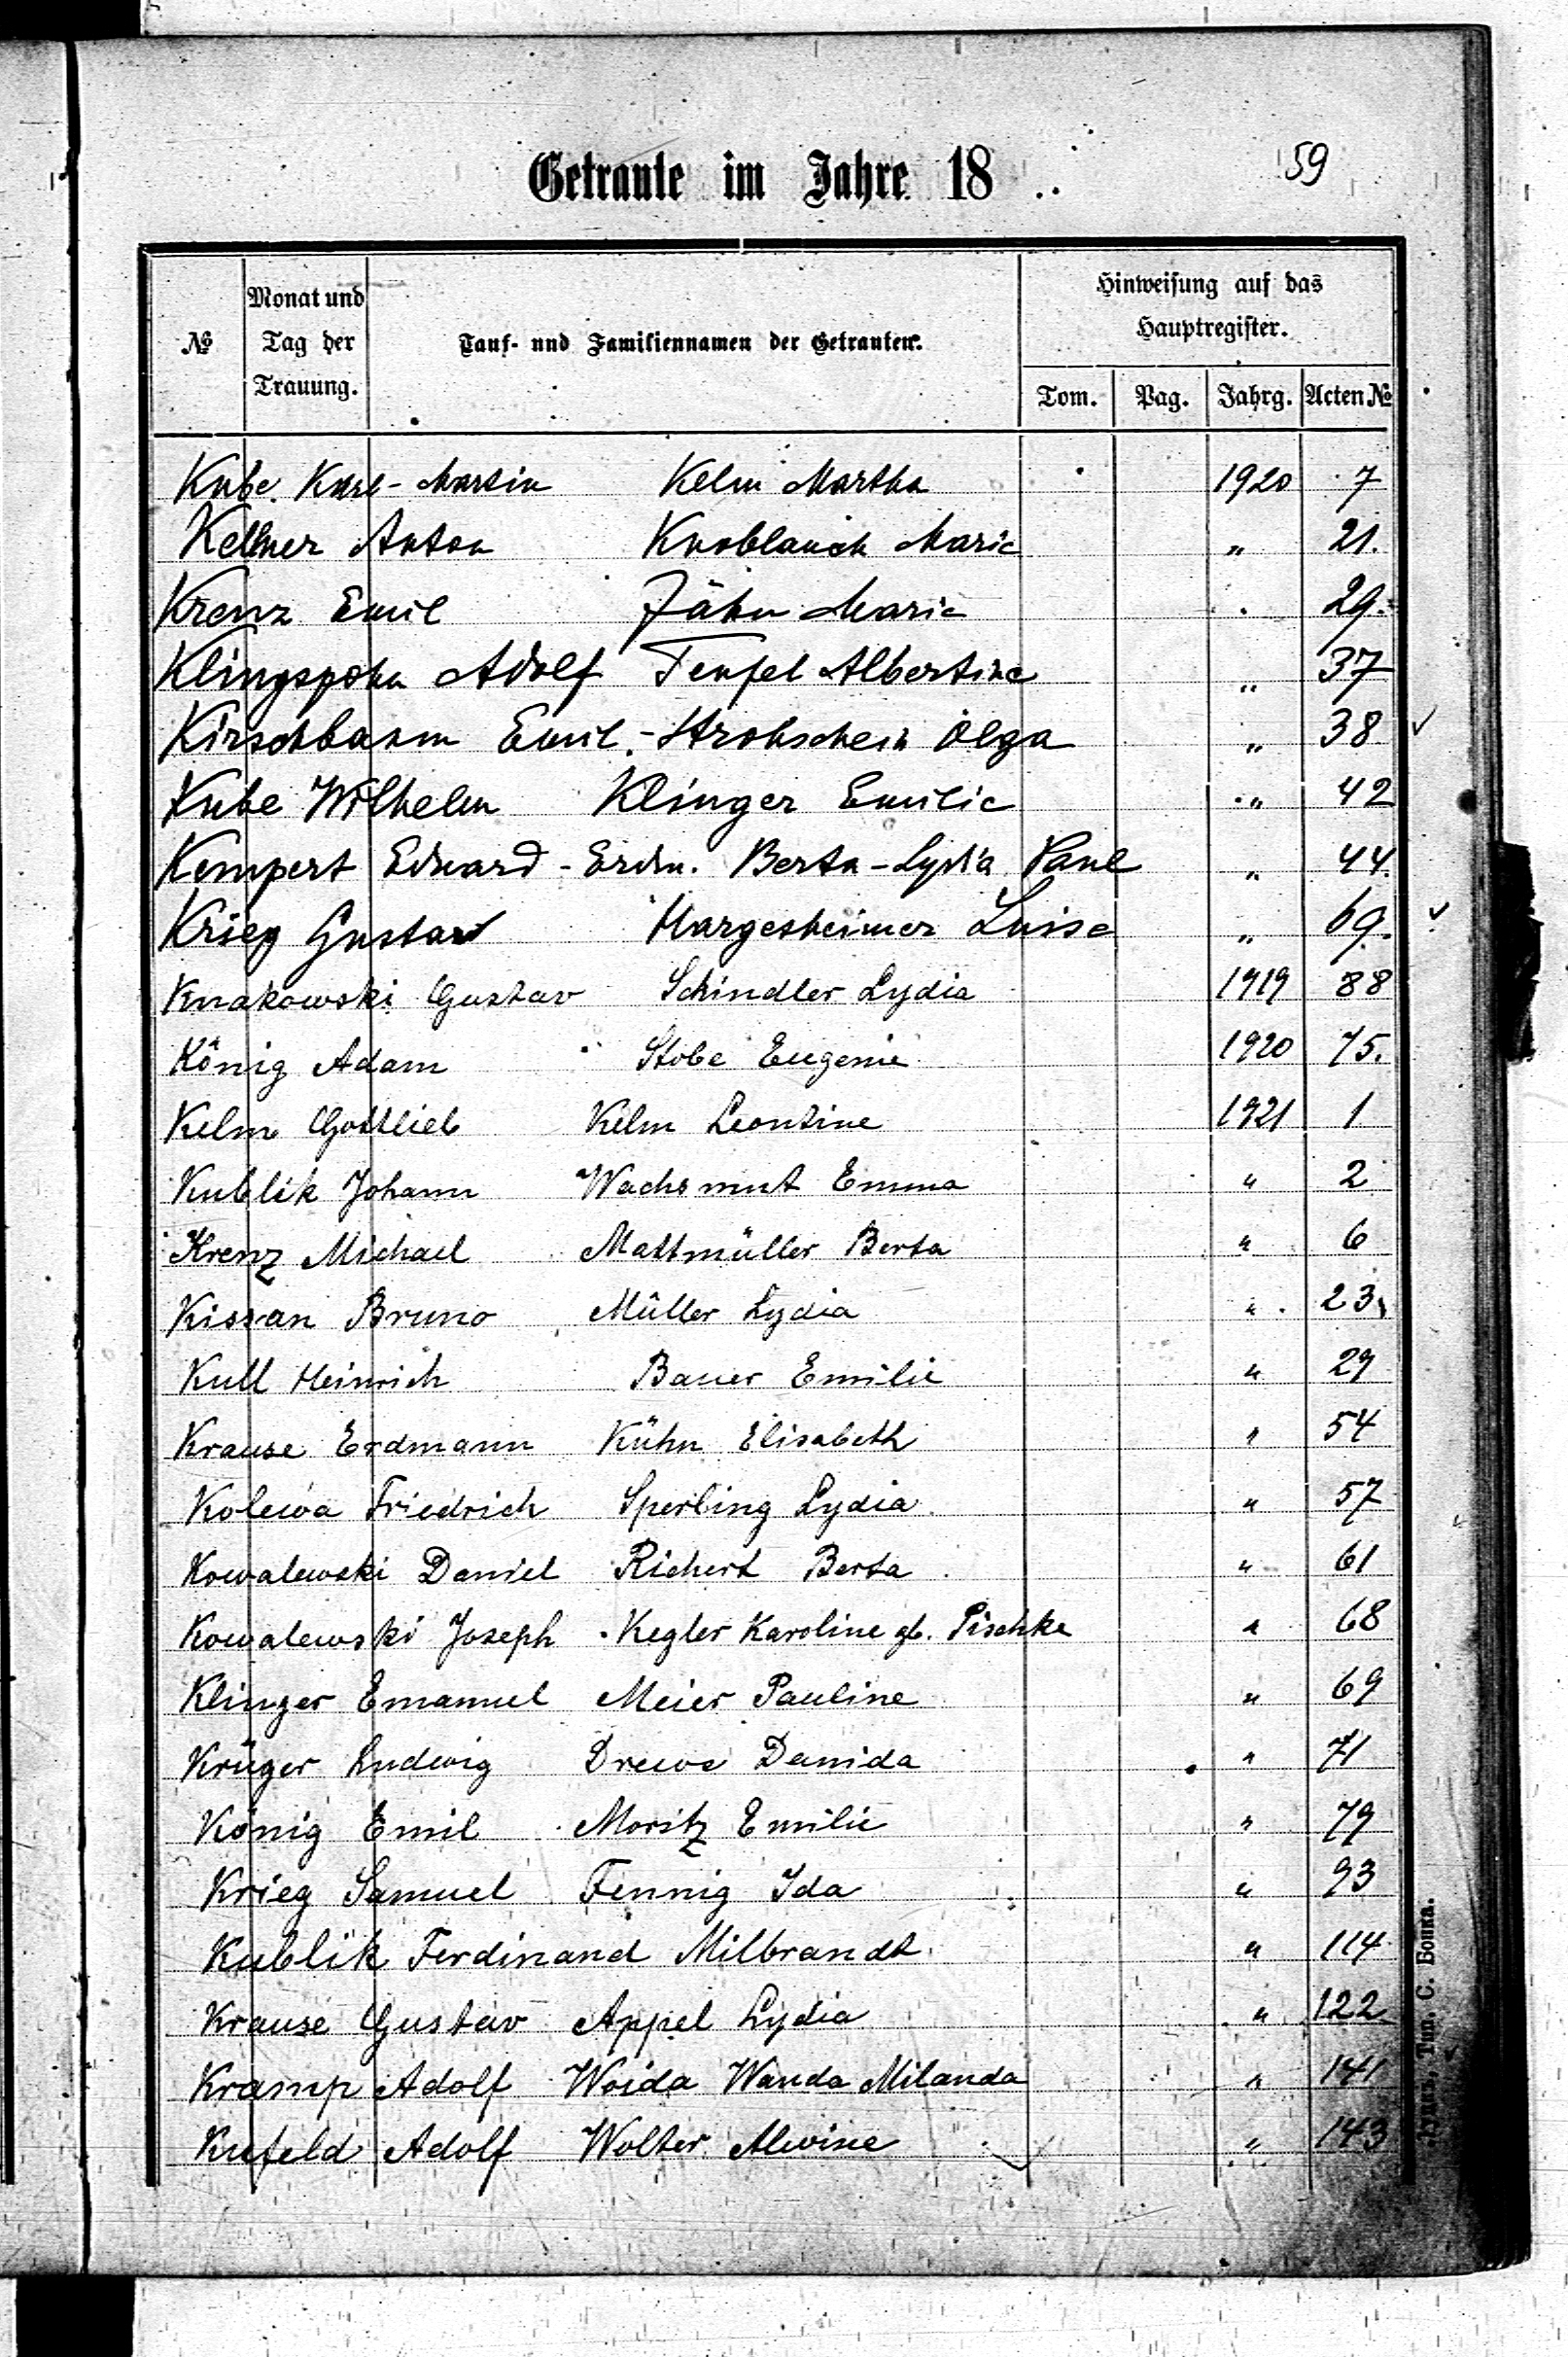 59
Getraute im Jahre 18 ..
№ Monat und Tag der Trauung. Tauf- und Familiennamen der Getrauten. Hinweisung auf das Hauptregister.
Tom. Pag. Jahrg. Acten №
Kube Karl-Martin Kelm Martha 1920 7
Kellner Anton Knoblauch Marie " 21.
Krenz Emil Jähn Marie . 29.
Klingspohn Adolf Teufel Albertine " 37
Kirschbaum Emil - Strohschein Olga " 38 ✓
Kube Wilhelm Klinger Emilie " 42
Kempert Eduard - Erdm. Berta-Lydia Paul " 44.
Krieg Gustav Hargesheimer Luise " 69. ✓
Knakowski Gustav Schindler Lydia 1919 88
König Adam Stobe Eugenie 1920 75.
Kelm Gottlieb Kelm Leontine 1921 1
Kublik Johann Wachsmut Emma " 2
Krenz Michael Mattmüller Berta " 6
Kissan Bruno Müller Lydia " 23
Kull Heinrich Bauer Emilie " 29
Krause Erdmann Kühn Elisabeth " 54
Kolewa Friedrich Sperling Lydia " 57
Kowalewski Daniel Richert Berta " 61
Kowalewski Joseph Kegler Karoline gb. Pischke " 68
Klinger Emanuel Meier Pauline " 69
Krüger Ludwig Drews Danida " 71
König Emil Moritz Emilie " 79
Krieg Samuel Fennig Ida " 93
Kublik Ferdinand Milbrandt " 114
Krause Gustav Appel Lydia " 122
Kramp Adolf Woida Wanda Milanda " 141
Kufeld Adolf Wolter Alwine " 143